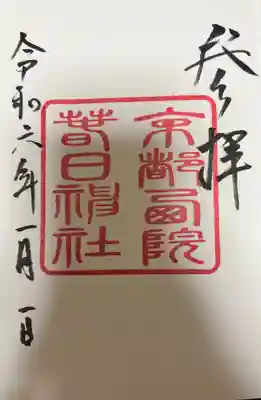 奉拝
京都西院
春日神社
令和六年一月一日